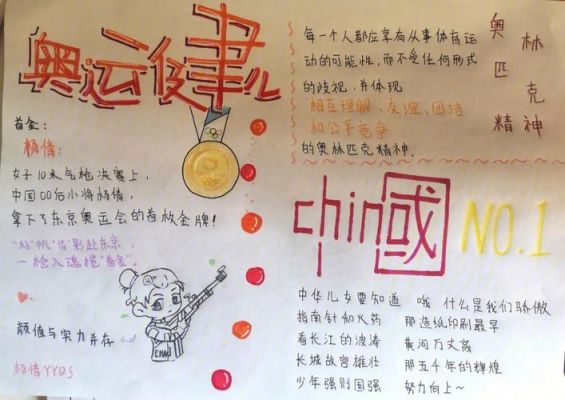 奥运健儿
首金:
杨倩:
女子10米气枪决赛上,
中国00后小将杨倩,
拿下了东京奥运会的首枚金牌!
一枪入魂揽"首金"。
颜值与实力并存
杨倩YYDS
CHN
每一个人都应享有从事体育运
动的可能性,而不受任何形式
的歧视,并体现
相互理解、友谊、团结
和公平竞争
的奥林匹克精神.
奥林匹克
精神
chin国
NO.1
中华儿女要知道 哦 什么是我们骄傲
指南针和火药 那造纸印刷最早
看长江的波涛 黄河万丈高
长城故宫雄壮 那五千年的辉煌
少年强则国强 努力向上~